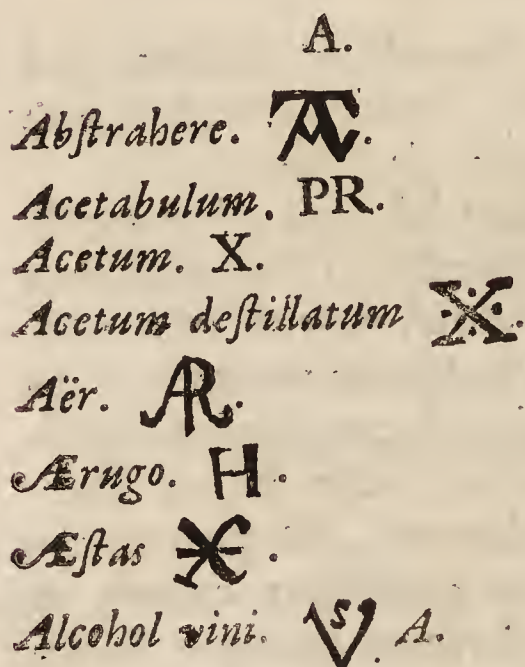 A.
Abſtrahere.
Acetabulum. PR.
Acetum. X.
Acetum deſtillatum
Aër.
Ærugo. H.
Æſtas
Alcohol vini. A.